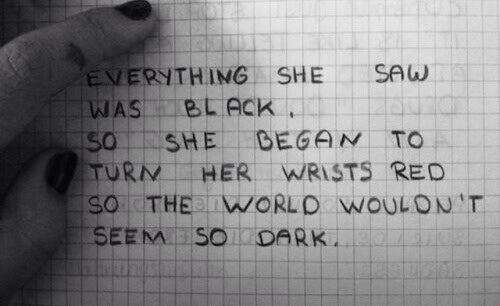 EVERYTHING SHE SAW
WAS BLACK,
SO SHE BEGAN TO
TURN HER WRISTS RED
SO THE WORLD WOULDN'T
SEEM SO DARK.